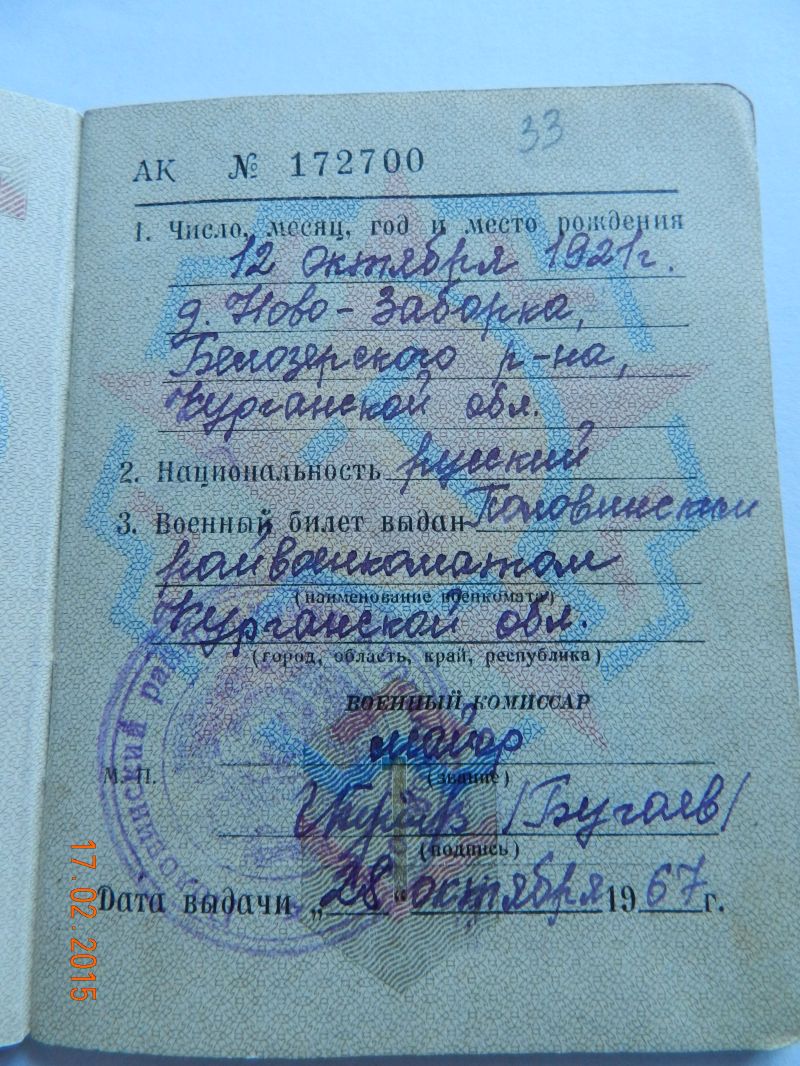 33
АК № 172700
1. Число, месяц, год и место рождения
12 октября 1921г.
д. Ново-Заборка,
Белозерского р-на,
Курганской обл.
2. Национальность русский
3. Военный билет выдан Половинским
райвоенкоматом
(наименование военкомата)
Курганской обл.
(город, область, край, республика)
ВОЕННЫЙ КОМИССАР
майор
М. П. (звание)
/Бугаев/
(подпись)
Дата выдачи „28“ октября 1967 г.
17.02.2015